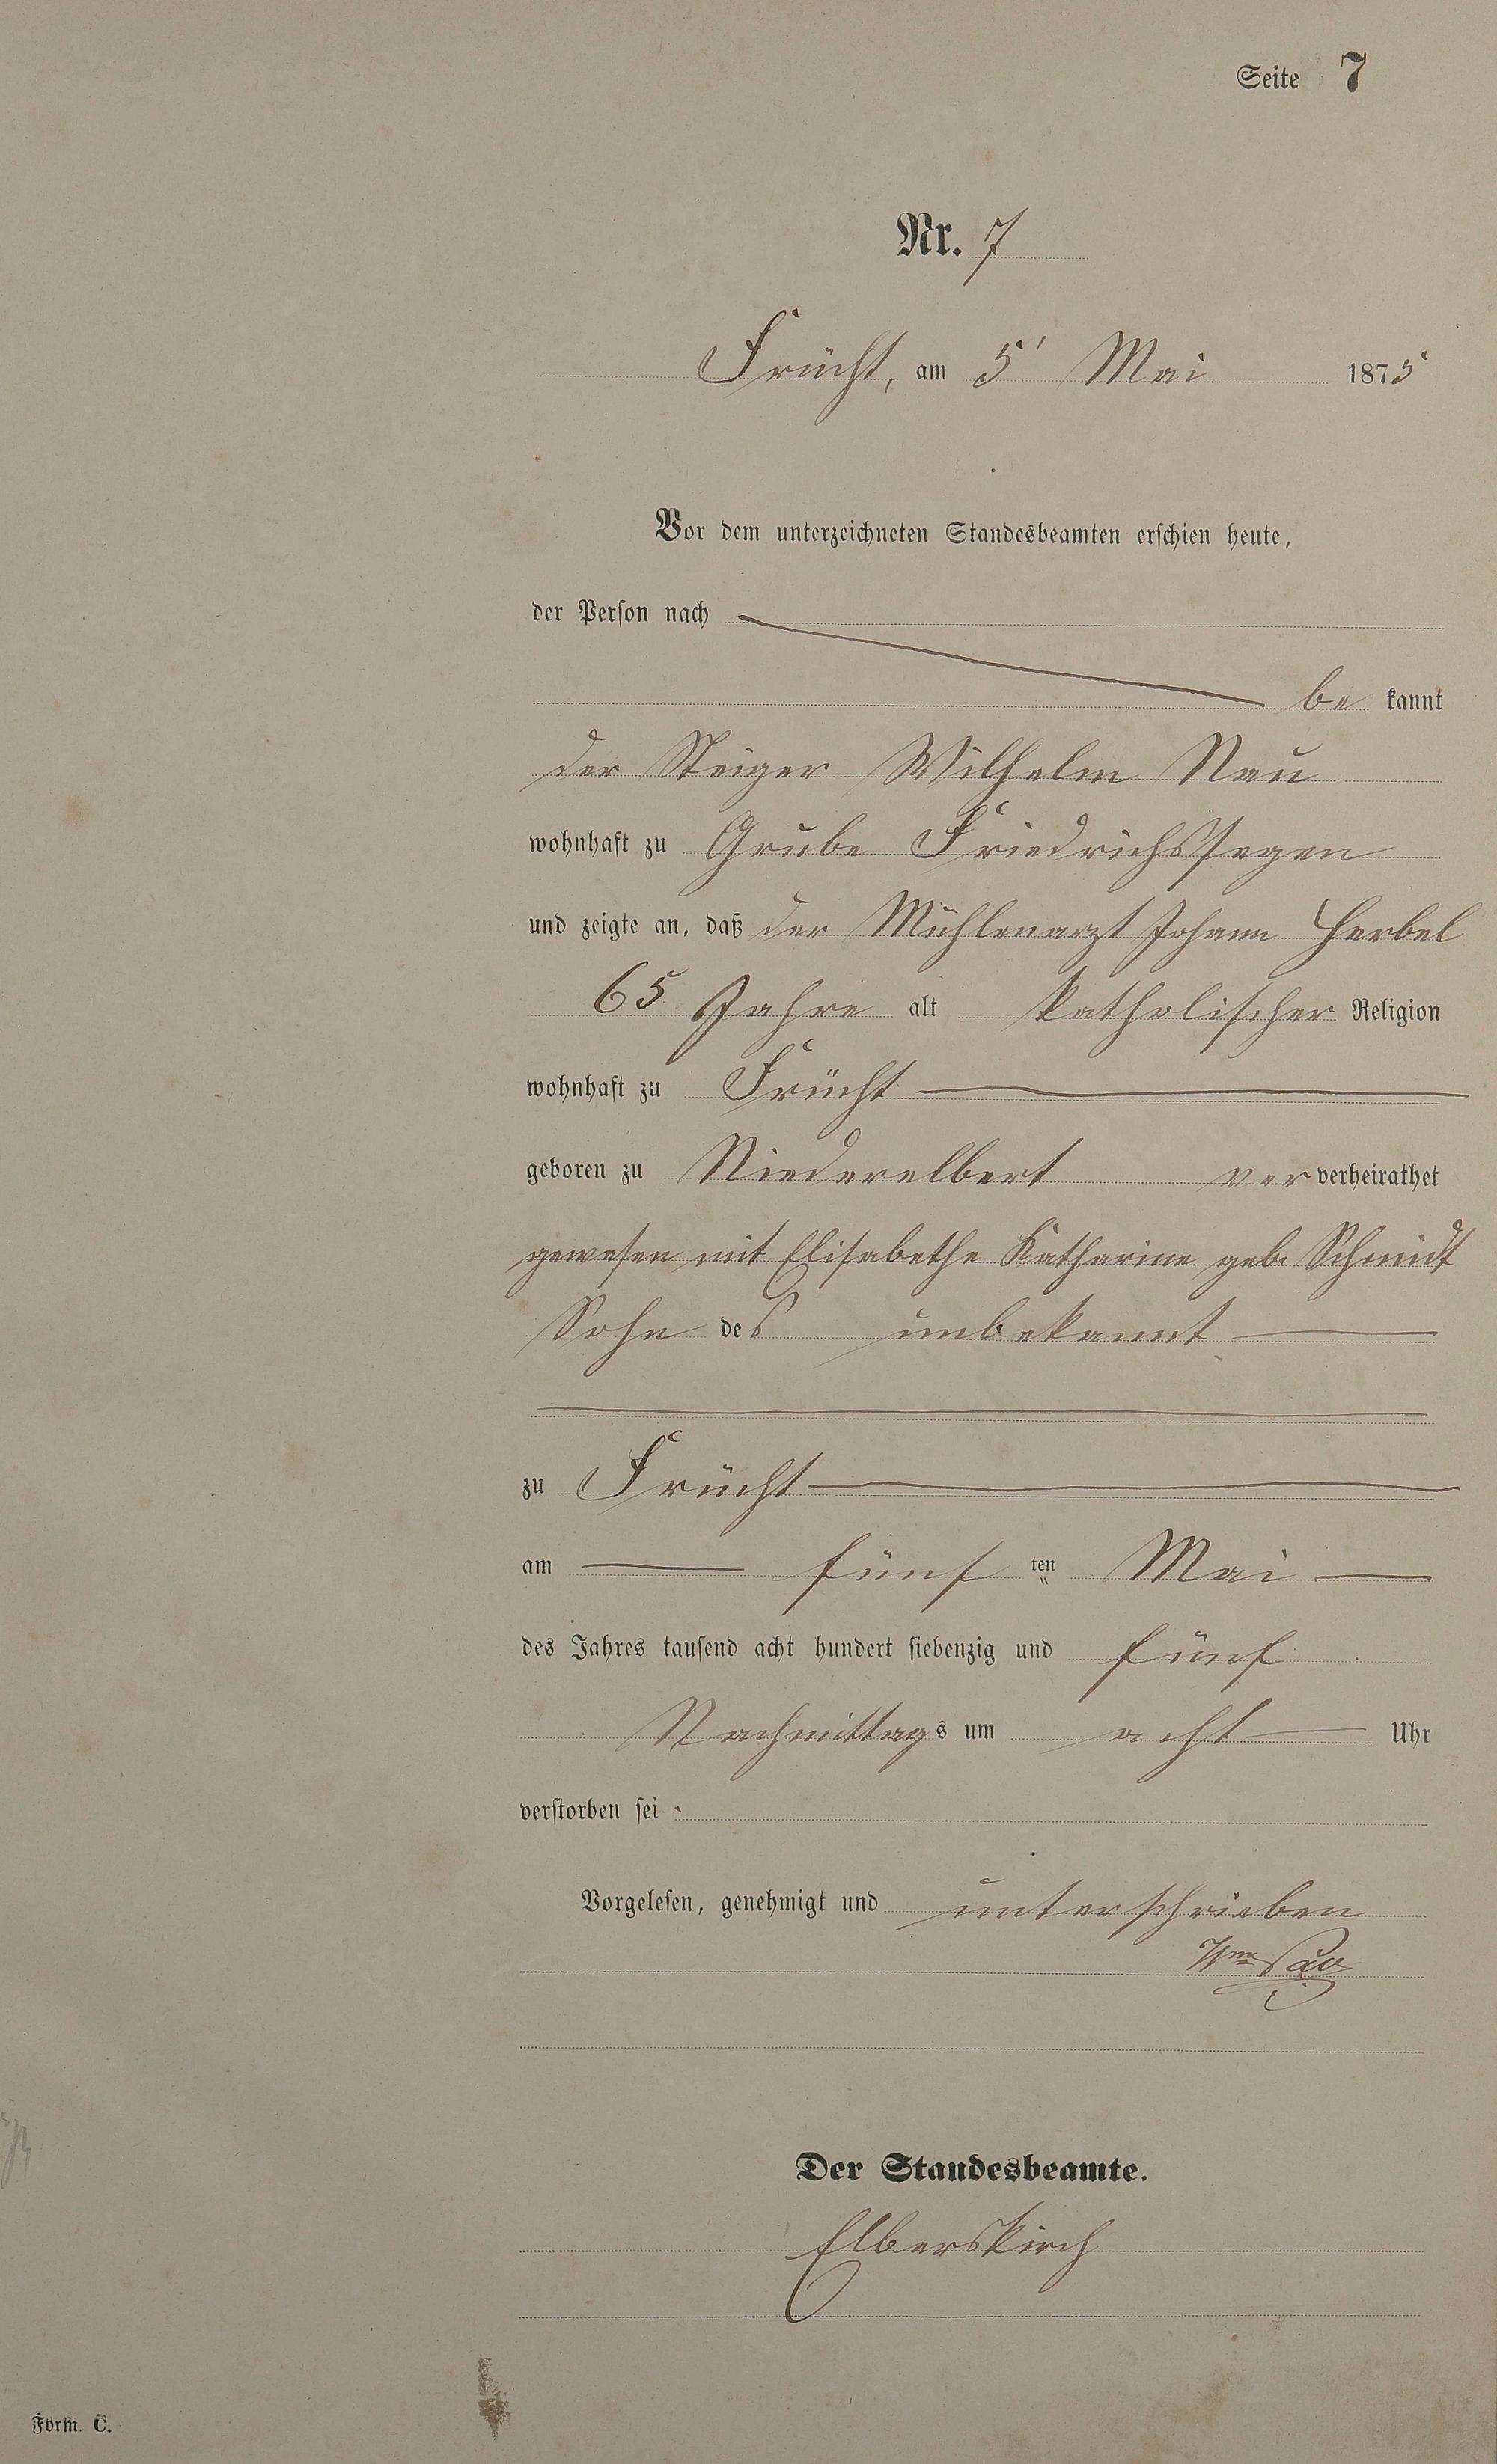 Seite 7
Nr. 7
Frücht, am 5' Mai 1875
Vor dem unterzeichneten Standesbeamten erschien heute,
der Person nach
be kannt
der Steiger Wilhelm Nau
wohnhaft zu Grube Friedrichssegen
und zeigte an, daß der Mühlenarzt Johann Herbel
65 Jahre alt katholischer Religion
wohnhaft zu Frücht
geboren zu Niederelbert ver verheirathet
gewesen mit Elisabethe Katharine geb. Schmidt
Sohn des unbekannt
zu Frücht
am fünf ten Mai
des Jahres tausend acht hundert siebenzig und fünf
Nachmittags um acht Uhr
verstorben sei.
Vorgelesen, genehmigt und unterschrieben
Wm Nau
Der Standesbeamte.
Elberskirch
Form. C.